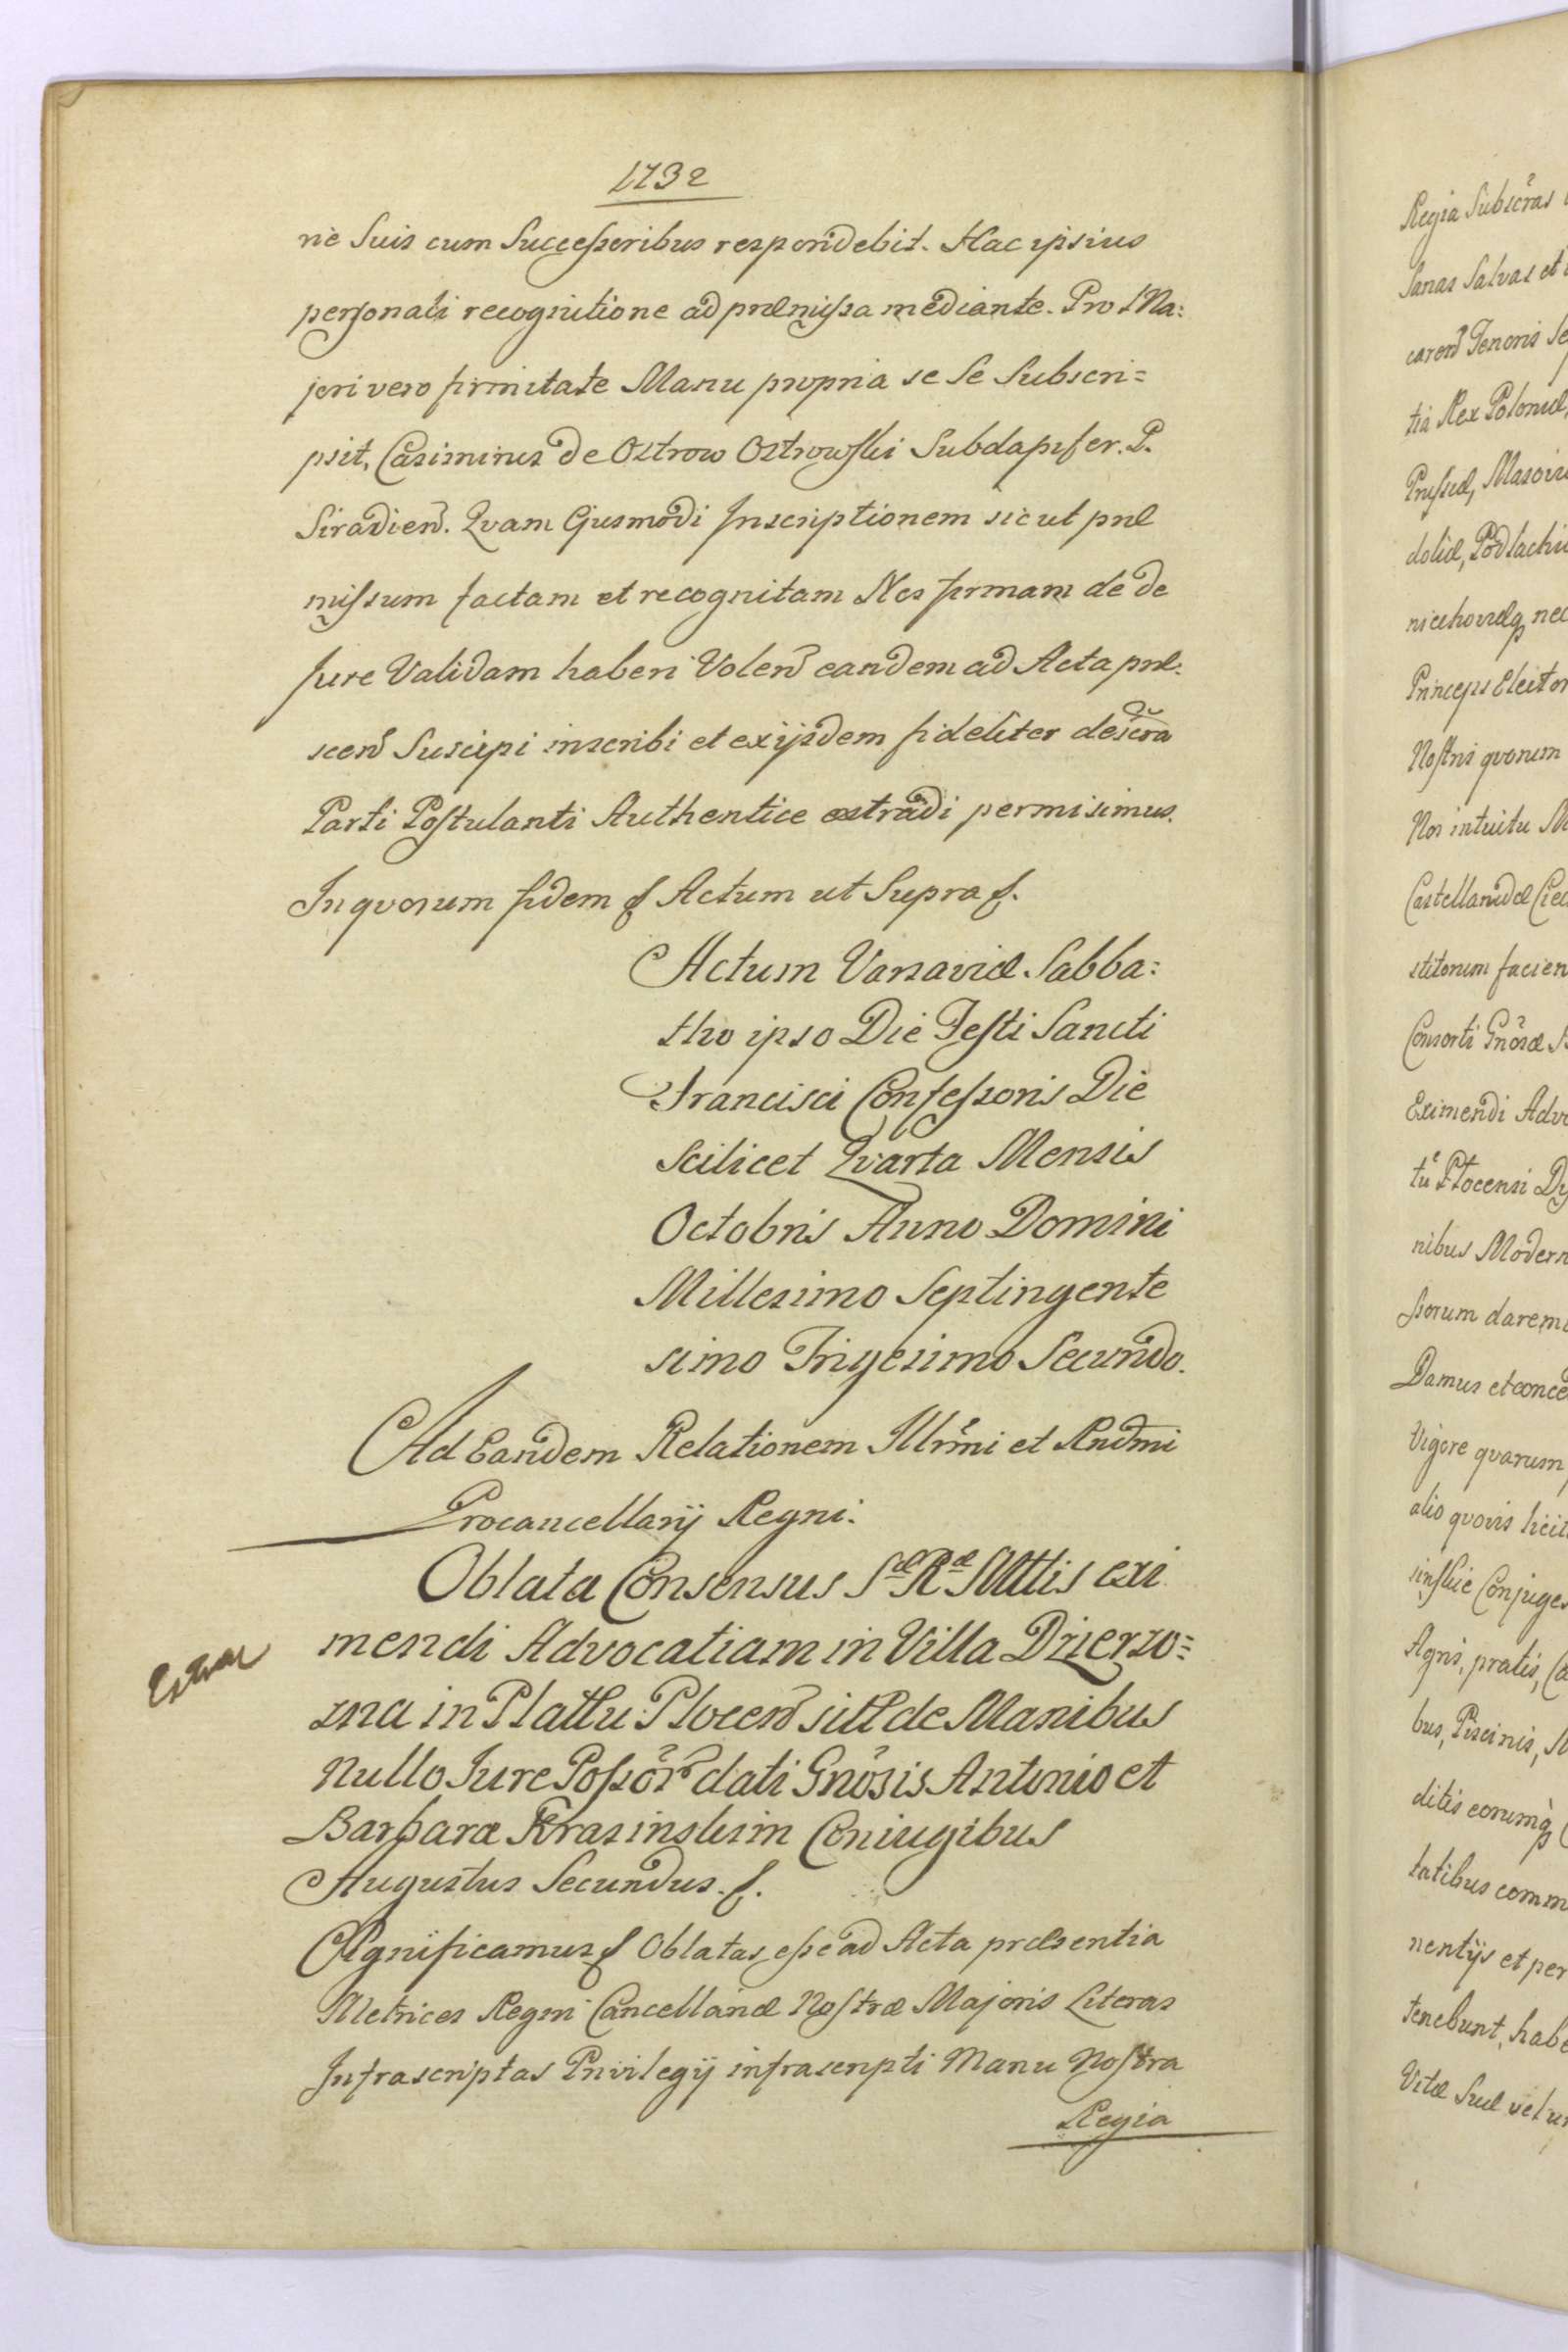 1732
rie Suis cum Successoribus respondebit. Hac ipsius
personali recognitione ad præmissa mediante. Pro Ma:
jori vero firmitate Manu propria se Se Subscri=
psit, Casimirus de Ostrow Ostrowski Subdapifer. P.
Siradien. Qvam Ejusmodi Inscriptionem sicut præ
missum factam et recognitam Nos firmam de de
Jure Validam haberi Volen eandem ad Acta præ:
scen Suscipi inscribi et exijsdem fideliter descra
Parti Postulanti Authentice extradi permisimus.
In qvorum fidem &c Actum ut Supra &c.
Actum Varsaviæ Sabba:
tho ipso Die Festi Sancti
Francisci Confessoris Die
Scilicet Qvarta Mensis
Octobris Anno Domini
Millesimo Septingente
simo Trigesimo Secundo.
Ad Eandem Relationem Illrmi et Rndmi
Procancellarij Regni.
Oblata Consensus Sæ Ræ Mttis exi
mendi Advocatiam in Villa Dzierzo=
zna in Plattu Plocen sitt de Manibus
nullo Jure Possor dati Gnosis Antonio et
Barbaræ Krasinskim Coniugibus
Augustus Secundus. &c.
Significamus &c Oblatas esse ad Acta præsentia
Metrices Regni Cancellariæ Nostræ Majoris Literas
Infrascriptas Privilegij infrascripti Manu Nostra
Regia
Regia Subscras
Sanas Salvas et
caren Tenoris Se
tia Rex Poloniæ,
Prussiæ, Masovi
doliæ, Podlachi
nicchoviæq nec
Princeps Elector
Nostris qvorum
Nos intuitu M
Castellanidæ Cie
stitorum facien
Consorti Gnosæ
Eximendi Advo
tu Plocensi Dy
nibus Modern
ssorum daremu
Damus et conce
Vigore qvarum
alio qvovis licit
sinskie Conjuges
Agris, pratis, Ca
bus, Piscinis, M
ditis eorumq
tatibus comm
nentijs et per
tenebunt, habe
Vitæ Suæ vel un